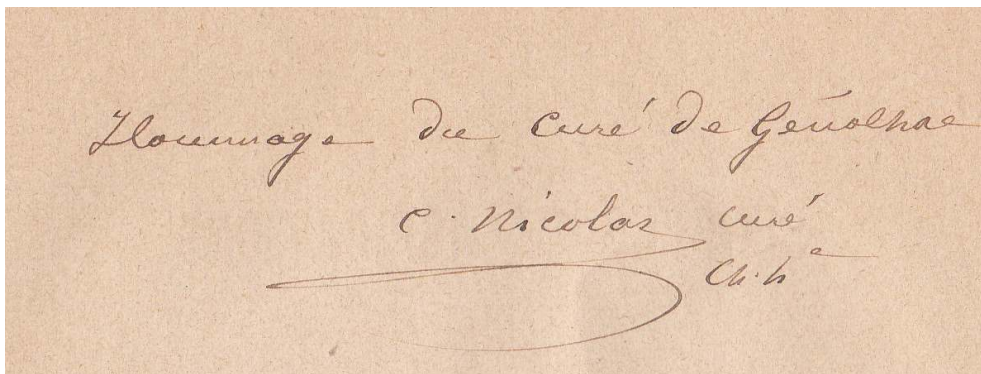 Hommage du Curé de Génolhac
C. Nicolas curé
Ch. h^e